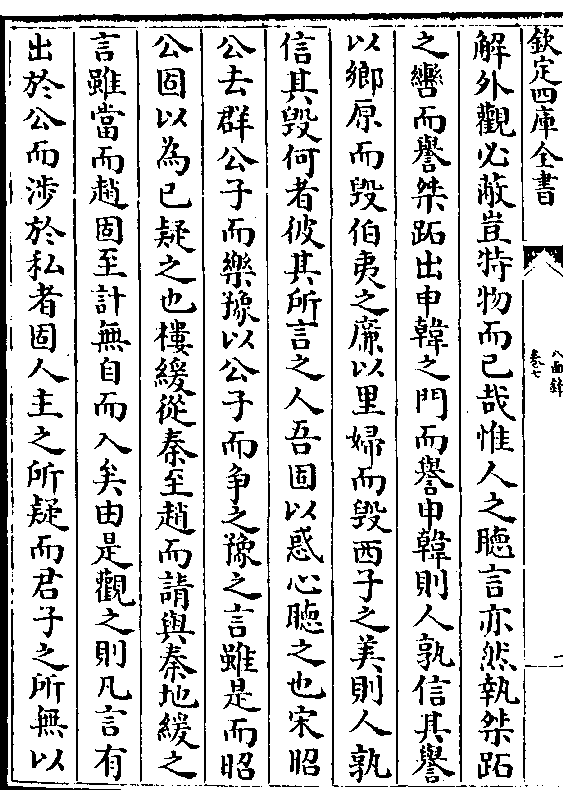 欽定四庫全書
八面鋒
卷七
一
解外觀必蔽豈特物而已哉惟人之聽言亦然執桀跖
之轡而譽桀跖出申韓之門而譽申韓則人孰信其譽
以鄉原而毀伯夷之廉以里婦而毀西子之美則人孰
信其毀何者彼其所言之人吾固以惑心聽之也宋昭
公去群公子而樂豫以公子而争之豫之言雖是而昭
公固以為已疑之也樓緩從秦至趙而請與秦地緩之
言雖當而趙固至計無自而入矣由是觀之則凡言有
出於公而涉於私者固人主之所疑而君子之所無以